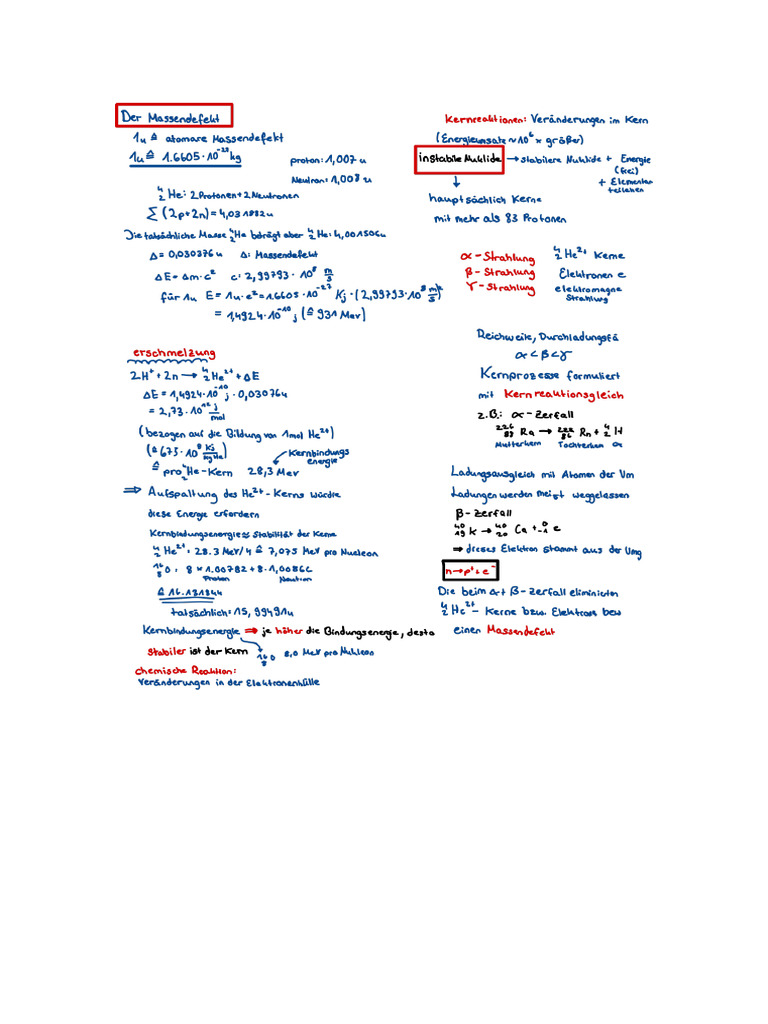 Der Massendefekt
1u ≙ atomare Massendefekt
1u ≙ 1.6605·10⁻²⁸ kg
proton: 1,007 u
Neutron = 1,008 u
⁴₂He: 2 Protonen + 2 Neutronen
∑ (2p+2n) = 4,031882u
Die tatsächliche Masse ⁴₂He beträgt aber ⁴₂He: 4,001506u
Δ = 0,030376u Δ: Massendefekt
ΔE = Δm·c² c: 2,99793·10⁸ m/s
für 1u E = 1u·c² = 1.6605·10⁻²⁷ Kj·(2,99793·10⁸ m/s)
= 1,4924·10⁻¹⁰ j (≙ 931 Mev)
erschmelzung
2H⁺ + 2n → ⁴₂He²⁺ + ΔE
ΔE = 1,4924·10⁻¹⁰ j · 0,03076u
= 2,73·10¹² j/mol
(bezogen auf die Bildung von 1mol He²⁺)
(≙ 673·10⁸ Kj/kgHe)
Kernbindungs
energie
≙ pro ⁴₂He-Kern 28,3 Mev
⇒ Aufspaltung des He²⁺-Kerns würde
diese Energie erfordern
Kernbindungsenergie ≈ Stabilität der Kerne
⁴₂He²⁺ = 28.3 MeV/4 ≙ 7,075 MeV pro Nucleon
¹⁶₈O: 8 × 1.00782 + 8·1,00866
Proton Neutron
≙ 16.131844
tatsächlich = 15,99491u
Kernbindungsenergie ⇒ je höher die Bindungsenergie, desto
stabiler ist der Kern
¹⁶₈O 8,0 MeV pro Nukleon
chemische Reaktion:
Veränderungen in der Elektronenhülle
Kernreaktionen: Veränderungen im Kern
(Energieumsatz ~ 10⁶ × größer)
instabile Nuklide → stabilere Nuklide + Energie
(frei)
+ Elementar
teilchen
↓
hauptsächlich Kerne
mit mehr als 83 Protonen
α-Strahlung ⁴₂He²⁺ Kerne
β-Strahlung Elektronen e
γ-Strahlung elektromagne
Strahlung
Reichweite, Durchladungsfä
α < β < γ
Kernprozesse formuliert
mit Kernreaktionsgleich
z.B: α-Zerfall
²²⁶₈₈Ra → ²²²₈₆Rn + ⁴₂H
Mutterkern Tochterkern α
Ladungsausgleich mit Atomen der Um
Ladungen werden meist weggelassen
β-Zerfall
⁴⁰₁₉K → ⁴⁰₂₀Ca + ⁰₋₁e
⇒ dieses Elektron stammt aus der Umg
n → p⁺ + e⁻
Die beim α + β-Zerfall eliminierten
⁴₂He²⁺ - Kerne bzw. Elektrons bew
einen Massendefekt